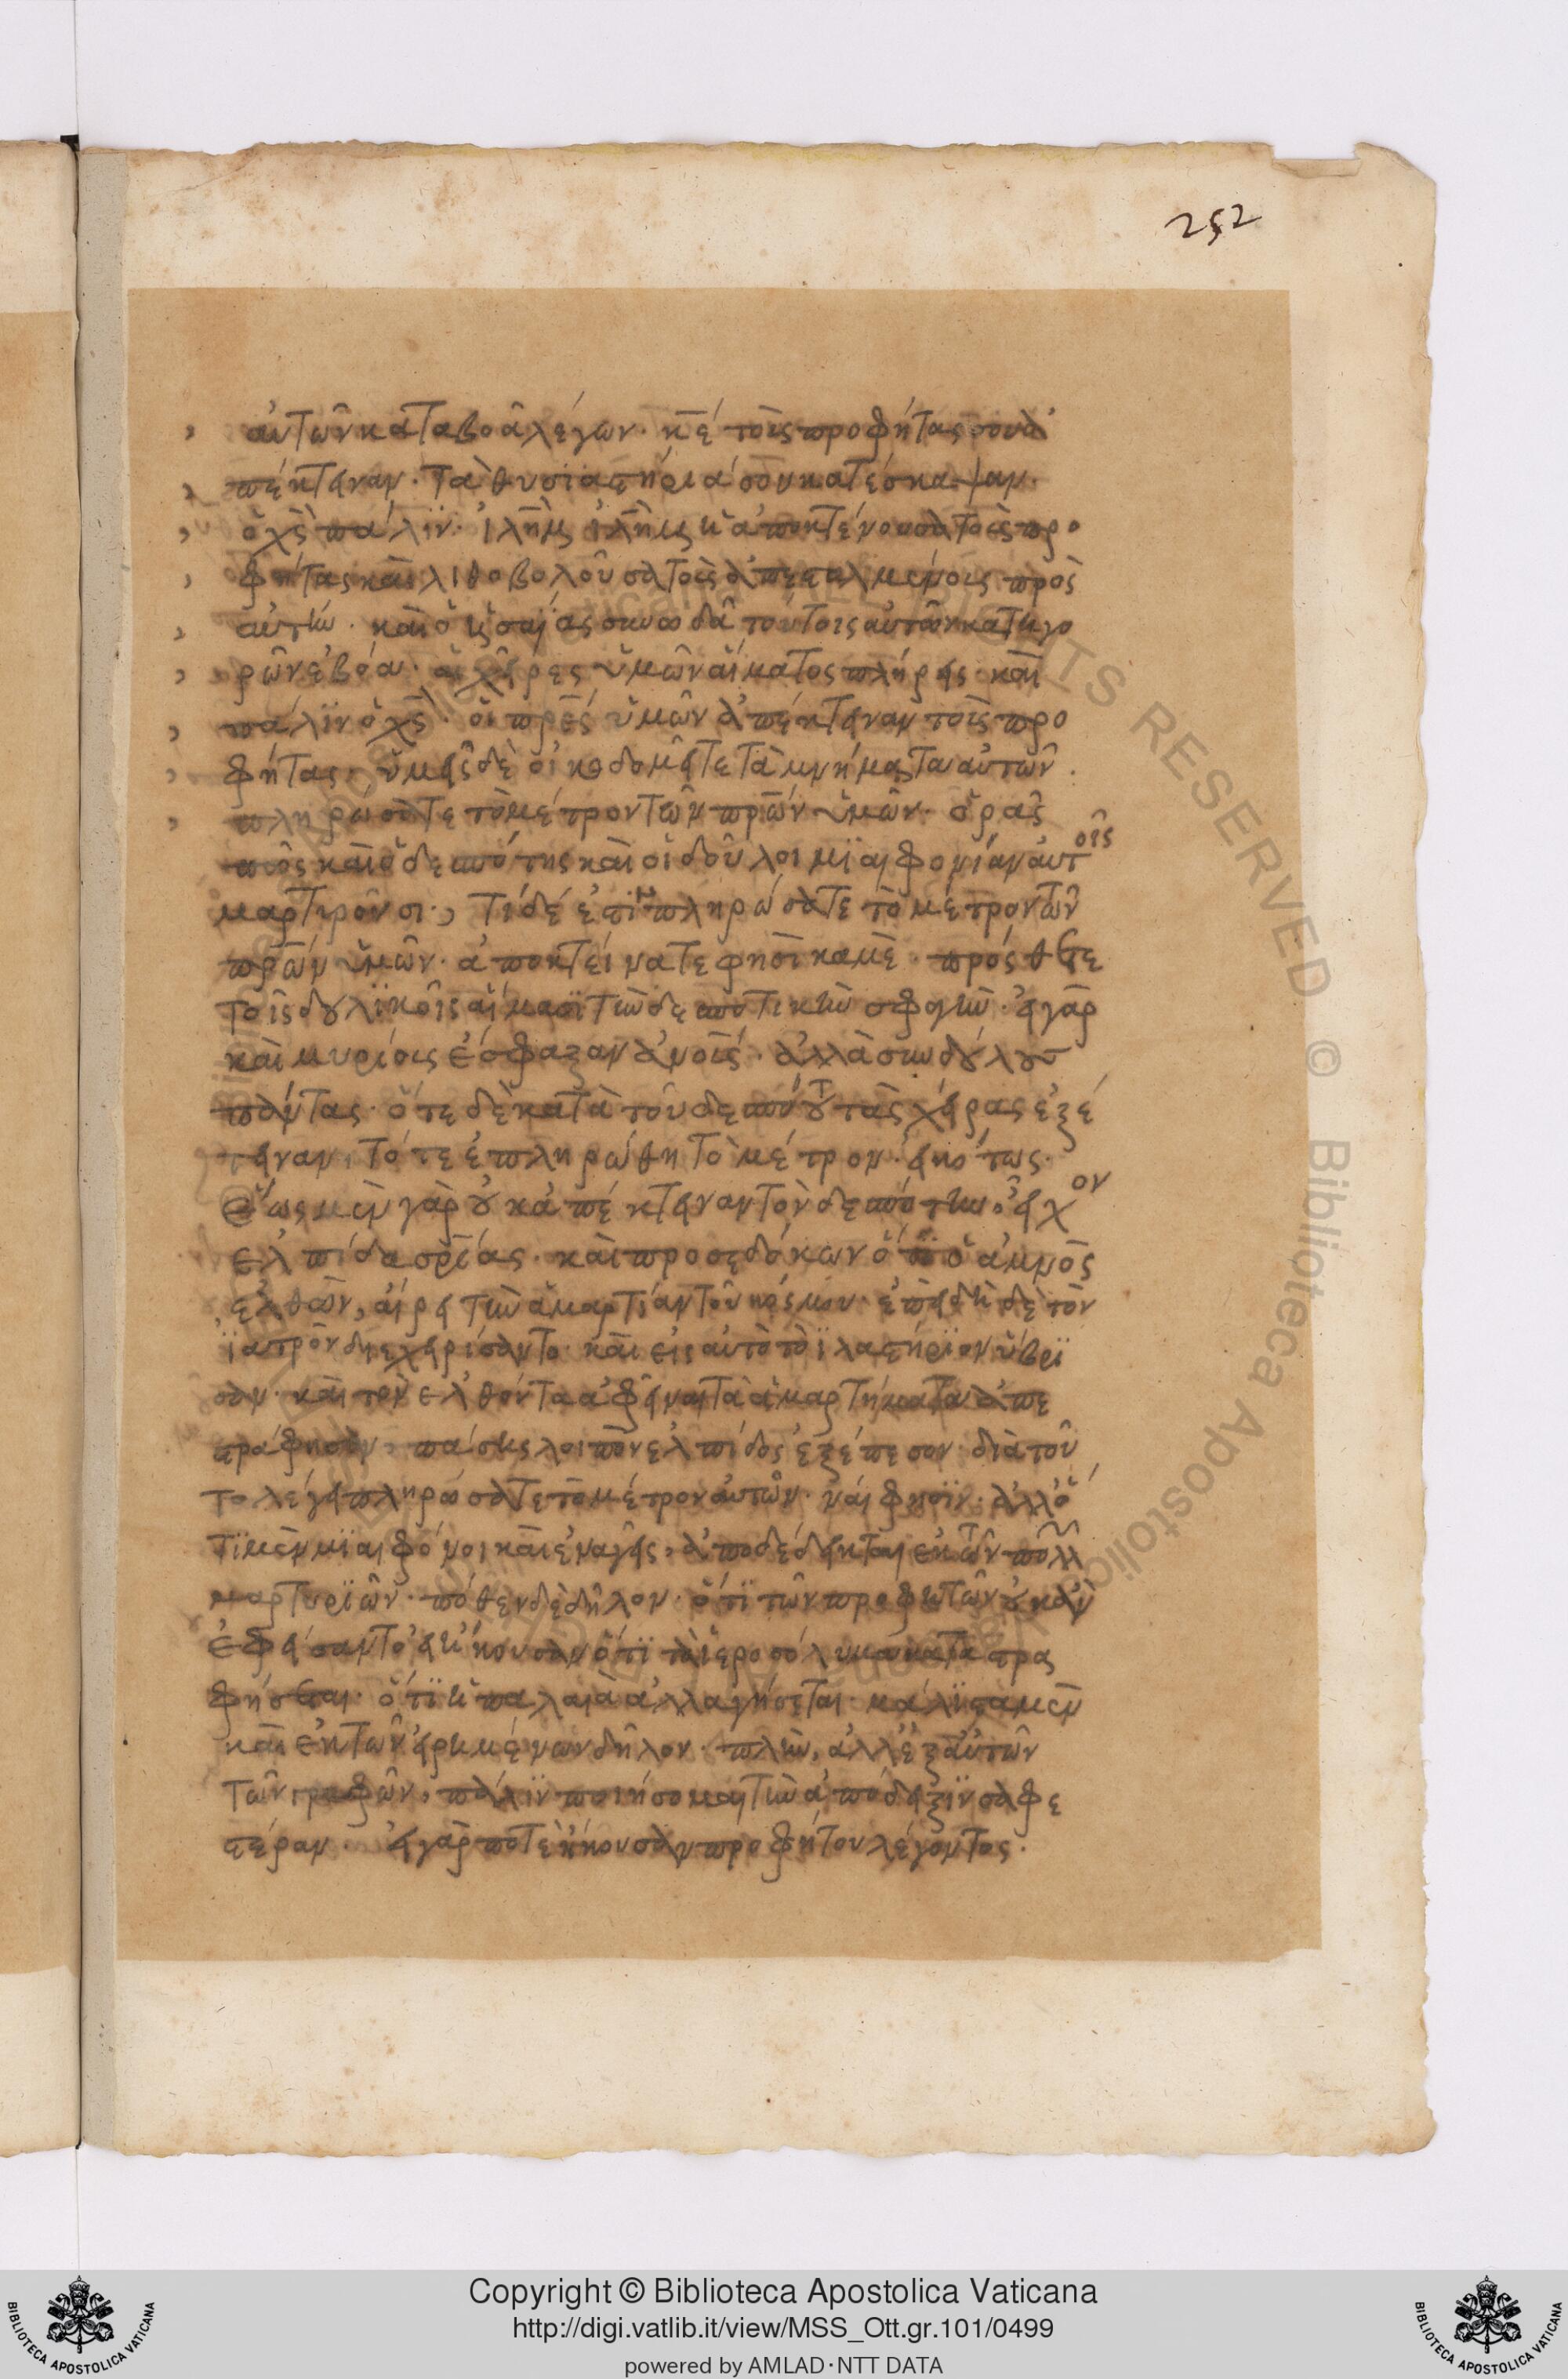 252
αὐτῶν καταβοᾷ λέγων. κ̅ε̅ τοὺς προφήτας σου ἀ
πέκτειναν. τὰ θυσιαστήριά σου κατέσκαψαν.
ὁ χ̅ς̅ πάλϊν. ἰλῆμ ἰλῆμ ἡ ἀποκτένουσα τοὺς προ
φήτας καὶ λιθοβολοῦσα τοὺς ἀπεσταλμένους πρὸς
αὐτήν. καὶ ὁ ἡσαΐας συνωδᾶ τούτοις αὐτῶν κατηγο
ρῶν ἐβόα. αἱ χεῖρες ὑμῶν αἵματος πλήρεις. καὶ
πάλϊν ὁ χ̅ς̅. οἱ πρ̅ες̅ ὑμῶν ἀπέκτειναν τοὺς προ
φήτας. ὑμεῖς δὲ οἰκοδομεῖτε τὰ μνήματα αὐτῶν.
πληρώσατε τὸ μέτρον τῶν πρ̅ων̅ ὑμῶν. ὁρᾶς
πῶς καὶ ὁ δεσπότης καὶ οἱ δοῦλοι μϊαιφονίαν αὐτοῖς
μαρτυροῦσι. τί δέ ἐστι πληρώσατε τὸ μέτρον τῶν
πρ̅ων̅ ὑμῶν. ἀποκτείνατε φησὶ καμὲ. πρόσθετε
τοῖς δουλϊκοῖς αἵμασϊ τὴν δεσποτικὴν σφαγήν. εἰ γὰρ
καὶ μυρίους ἔσφαξαν ἀν̅ο̅υς̅. ἀλλὰ συνδούλους
πάντας. ὅτε δὲ κατὰ τοῦ δεσπότου τὰς χεῖρας ἐξέ
τειναν, τότε ἐπληρώθη τὸ μέτρον. εἰκότως.
ἕως μὲν γὰρ οὐκ ἀπέκτειναν τὸν δεσπότην. εἶχον
ἐλπίδα σρ̅ίας. καὶ προσεδόκων ὅτι ὁ ἀμνὸς
ἐλθὼν, αἴρει τὴν ἁμαρτίαν τοῦ κόσμου. ἐπειδὴ δὲ τὸν
ϊατρὸν διεχειρίσαντο. καὶ εἰς αὐτὸ τὸ ϊλαστήριον ὕβρϊ
σαν. καὶ τὸν ἐλθόντα ἀφεῖναι τὰ ἁμαρτήματα ἀπε
στράφησαν. πάσης λοιπὸν ἐλπίδος ἐξέπεσον. διὰ τοῦ
το λέγει πληρώσατε τὸ μέτρον αὐτῶν. ναι φησϊν. ἀλλ' ὅ
τϊ μὲν μϊαιφόνοι καὶ ἐναγεῖς, ἀποδέδεικται ἐκ τῶν πολλ
μαρτυρϊῶν. πόθεν δὲ δῆλον. ὅτϊ τῶν προφητῶν οὐκ ἂν
ἐφείσαντο εἰ ἤκουσαν ὅτϊ τὰ ἱεροσόλυμα καταστρα
φήσεται. ὅτϊ ἡ παλαιὰ ἀλλαγήσεται. μάλϊστα μὲν
καὶ ἐκ τῶν εἰρημένων δῆλον. πλὴν, ἀλλ' ἐξ αὐτῶν
τῶν γραφῶν. πάλϊν ποιήσομαι τὴν ἀπόδειξϊν σαφε
στέραν. εἰ γὰρ ποτε ἤκουσαν προφήτου λέγοντος.
Copyright © Biblioteca Apostolica Vaticana
http://digi.vatlib.it/view/MSS_Ott.gr.101/0499
powered by AMLAD·NTT DATA
BIBLIOTECA APOSTOLICA VATICANA
BIBLIOTECA APOSTOLICA VATICANA